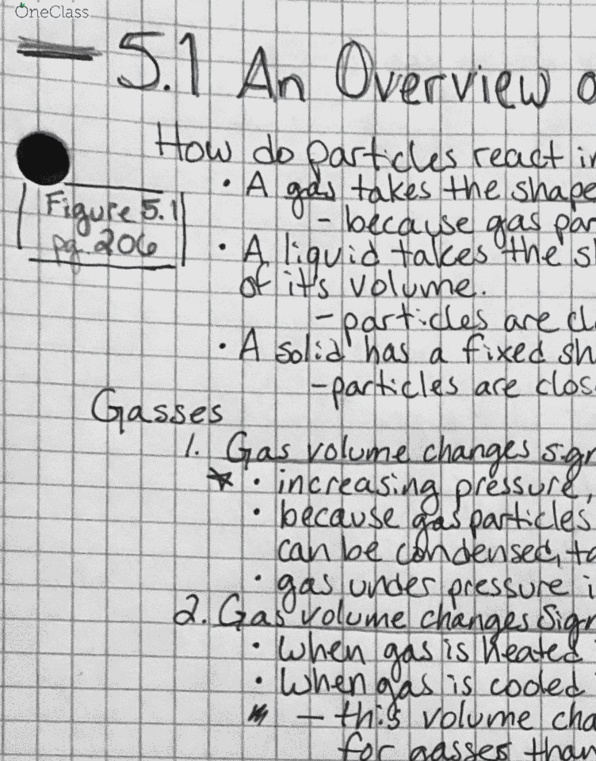 OneClass
5.1 An Overview o
How do particles react in
• A gas takes the shape
Figure 5.1
pg. 206
- because gas par
• A liquid takes the s
of it's volume.
- particles are cl
• A solid has a fixed sh
- particles are clos
Gasses
1. Gas volume changes sigr
* • increasing pressure,
• because gas particles
can be condensed, to
• gas under pressure i
2. Gas volume changes sigr
• when gas is heated
• when gas is cooled
- this volume cha
for gasses than